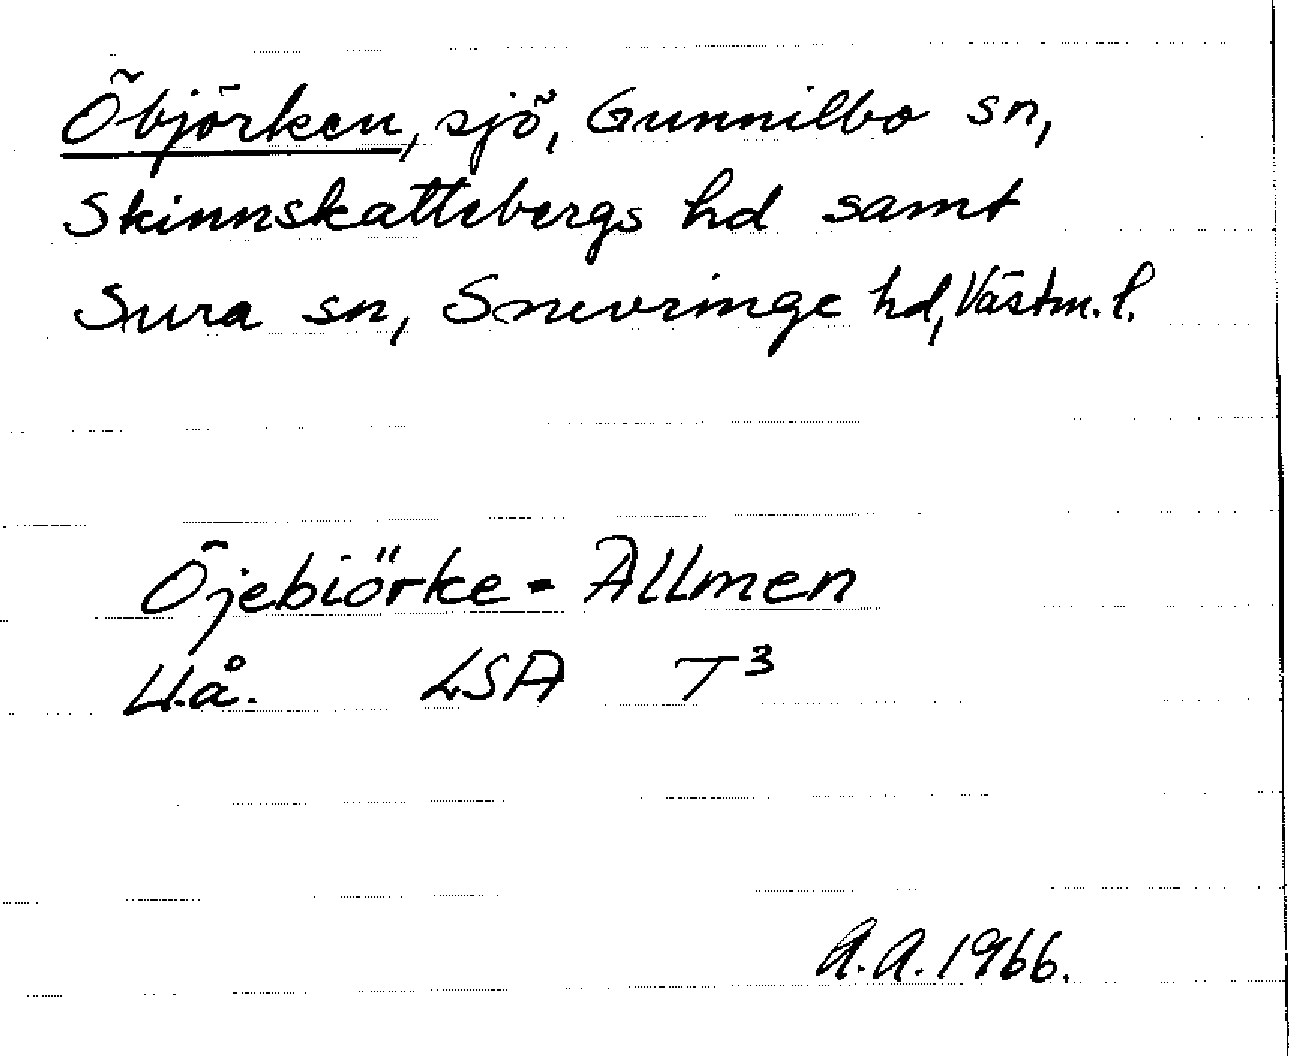 Öbjörken, sjö, Gunnilbo sn,
Skinnskattebergs hd samt
Sura sn, Snevringe hd, Västm. l.
Öjebiörke - Allmen
U.å. LSA T³
A.A. 1966.